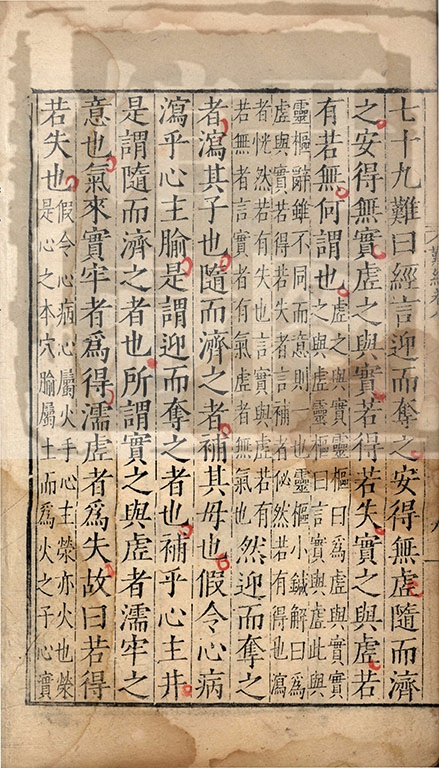 七十九難曰經言迎而奪之安得無虛隨而濟
之安得無實虛之與實若得若失實之與虛若
有若無何謂也虛之與實靈樞曰爲虛與實實
之與虛靈樞曰言實與虛此與
靈樞辭雖不同而意則一也靈樞小鍼解曰爲
虛與實若得若失者言補者佖然若有得也瀉
者恍然若有失也言實與虛若有
若無者言實者有氣虛者無氣也然迎而奪之
者瀉其子也隨而濟之者補其母也假令心病
瀉手心主腧是謂迎而奪之者也補手心主井
是謂隨而濟之者也所謂實之與虛者濡牢之
意也氣來實牢者爲得濡虛者爲失故曰若得
若失也假令心病心屬火手心主榮亦火也榮
是心之本穴腧屬土而爲火之子心實